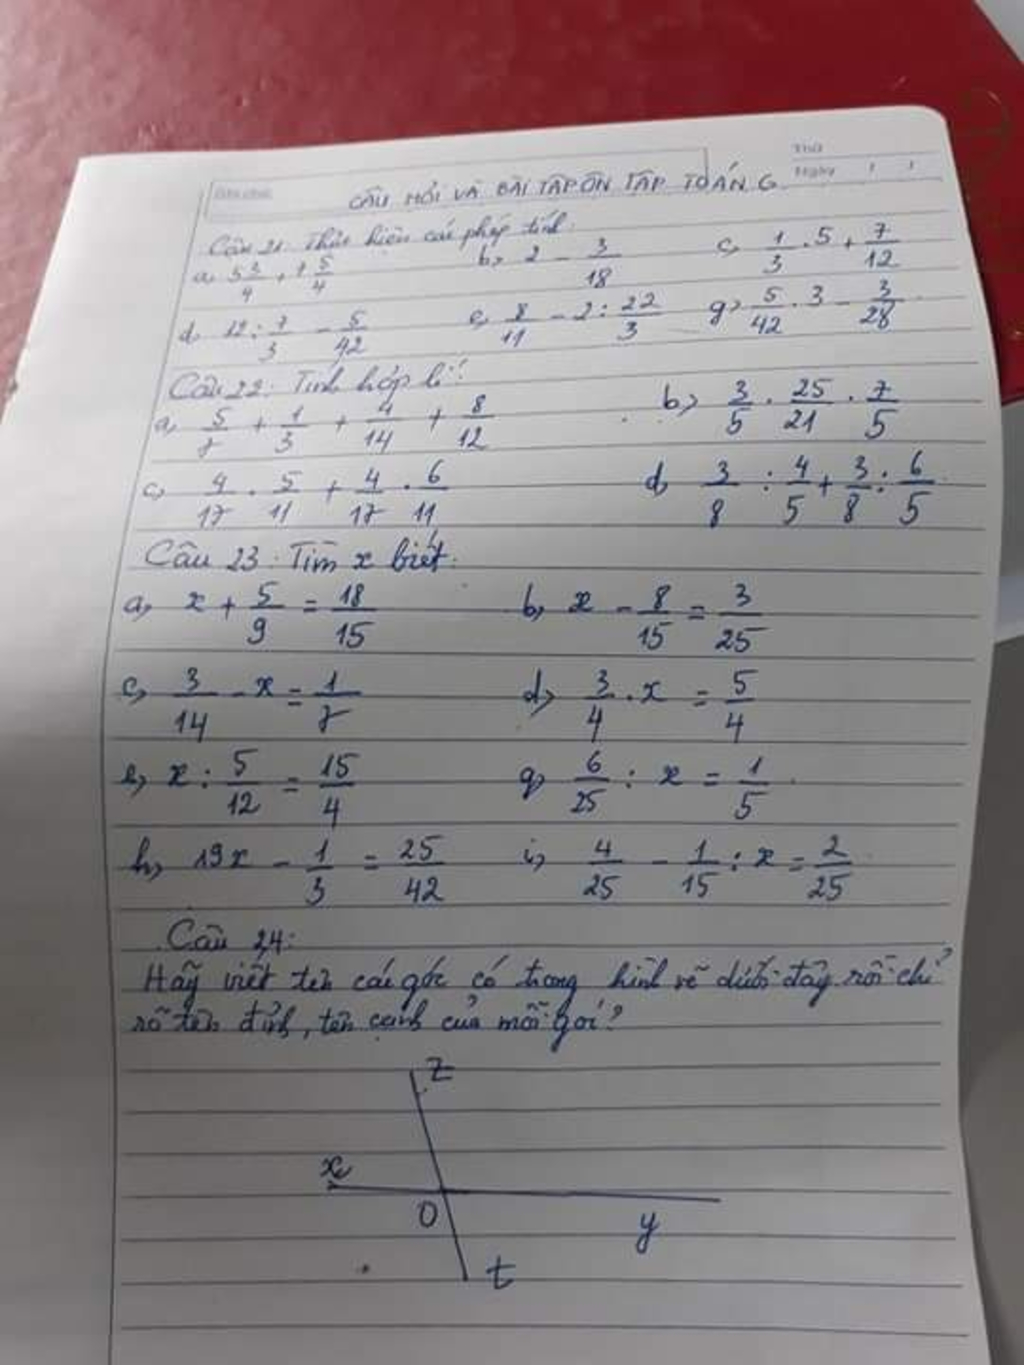 Thứ
Ngày / /
CÂU HỎI VÀ BÀI TẬP ÔN TẬP TOÁN 6
Câu 21: Thực hiện các phép tính.
a, 5 3/4 + 1 5/4 b, 2 - 3/18 c, 1/3 . 5 + 7/12
d, 12 : 7/3 - 5/42 e, 8/11 - 2 : 22/3 g, 5/42 . 3 - 3/28
Câu 22: Tính hợp lí:
a, 5/7 + 1/3 + 4/14 + 8/12 b, 3/5 . 25/21 . 7/5
c, 4/17 . 5/11 + 4/17 . 6/11 d, 3/8 : 4/5 + 3/8 : 6/5
Câu 23: Tìm x biết:
a, x + 5/9 = 18/15 b, x - 8/15 = 3/25
c, 3/14 - x = 1/7 d, 3/4 . x = 5/4
e, x : 5/12 = 15/4 g, 6/25 : x = 1/5
h, 19x - 1/3 = 25/42 i, 4/25 - 1/15 : x = 2/25
Câu 24:
Hãy viết tên các góc có trong hình vẽ dưới đây rồi chỉ
rõ tên đỉnh, tên cạnh của mỗi góc?
z
x
O
y
t